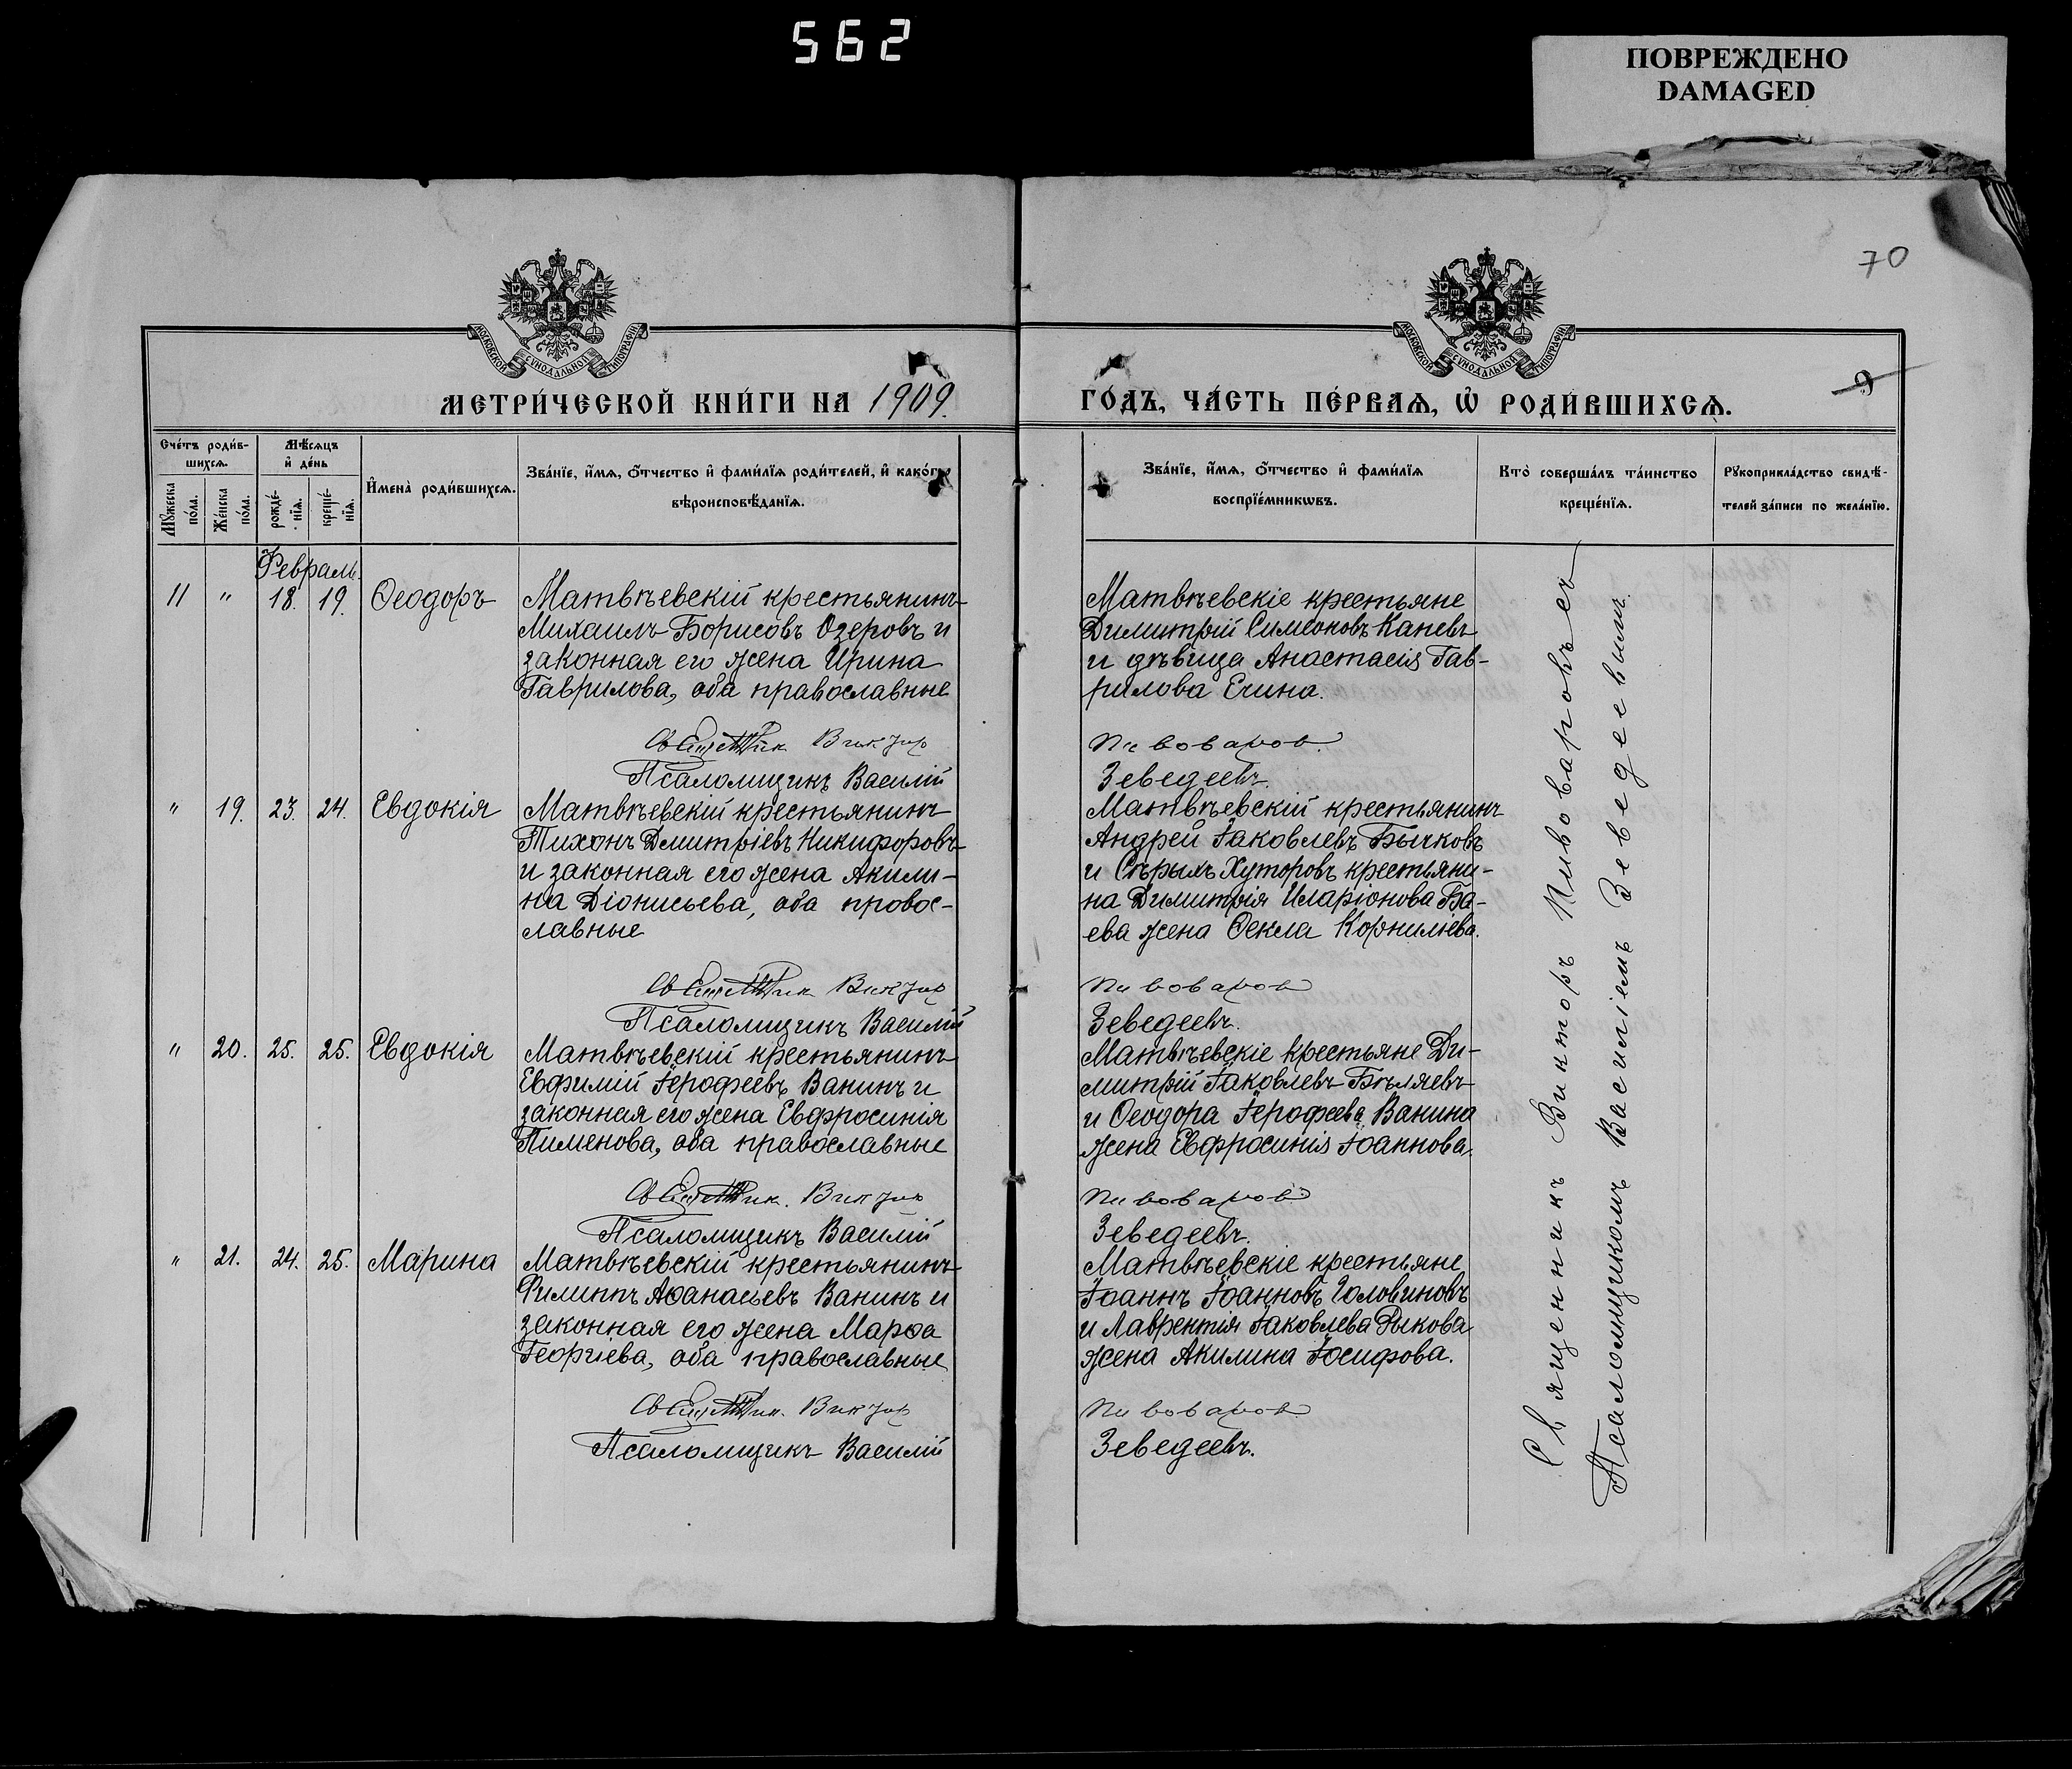 562
ПОВРЕЖДЕНО
DAMAGED
70
МОСКОВСКОЙ СУНОДАЛЬНОЙ ТИПОГРАФІИ
МОСКОВСКОЙ СУНОДАЛЬНОЙ ТИПОГРАФІИ
МЕТРИ́ЧЕСКОЙ КНИ́ГИ НА 1909.
ГО́ДЪ, ЧА́СТЬ ПЕ́РВАѦ, Ѽ РОДИ́ВШИХСѦ.
9
Сче́тъ роди́в-
шихсѧ.
Мꙋ́жеска
по́ла.
Же́нска
по́ла.
Мѣ́сѧцъ
и҆ де́нь
рожде́-
нїѧ.
креще́-
нїѧ.
И҆мена̀ роди́вшихсѧ.
Зва́нїе, и҆́мѧ, ѻ҆́тчество и҆ фами́лїѧ роди́телей, и҆ како́гѡ
вѣроисповѣ́данїѧ.
Зва́нїе, и҆́мѧ, ѻ҆́тчество и҆ фами́лїѧ
воспрїе́мникѡвъ.
Кто̀ соверша́лъ та́инство
креще́нїѧ.
Рꙋкоприкла́дство свидѣ́-
телей за́писи по жела́нїю.
Февраль.
11 " 18. 19. Ѳеодоръ
Матвѣевскій крестьянинъ
Михаилъ Борисовъ Озеровъ и
законная его жена Ирина
Гаврилова, оба православные
Священник Виктор
Псаломщикъ Василій
Матвѣевскіе крестьяне
Димитрій Симеоновъ Каневъ
и дѣвица Анастасія Гав-
рилова Ечина.
Пивоваров.
Зеведеевъ.
" 19. 23. 24. Евдокія
Матвѣевскій крестьянинъ
Тихонъ Дмитріевъ Никифоровъ
и законная его жена Акили-
на Діонисьева, оба провос-
лавные
Священник Виктор
Псаломщикъ Василій
Матвѣевскій крестьянинъ
Андрей Іаковлевъ Бычковъ
и Сѣрыхъ Хуторовъ крестьяни-
на Димитрія Иларіонова Ба-
ева жена Ѳекла Корнильева.
Пивоваров
Зеведеевъ.
" 20. 25. 25. Евдокія
Матвѣевскій крестьянинъ
Евфимій Іерофеевъ Ванинъ и
законная его жена Евфросинія
Пименова, оба православные
Священник. Виктор
Псаломщикъ Василій
Матвѣевскіе крестьяне Ди-
митрій Іаковлевъ Бѣляевъ
и Ѳеодора Іерофеева Ванина
жена Евфросинія Іоаннова.
Пивоваров
Зеведеевъ.
" 21. 24. 25. Марина
Матвѣевскій крестьянинъ
Филиппъ Аѳанасьевъ Ванинъ и
законная его жена Марѳа
Георгіева, оба православные
Священник. Виктор
Псаломщикъ Василій
Матвѣевскіе крестьяне
Іоаннъ Іоанновъ Головиновъ
и Лаврентія Іаковлева Рыкова
жена Акилина Іосифова.
Пивоваров
Зеведеевъ.
Священникъ Викторъ Пивоваровъ съ
Псаломщикомъ Василіемъ Зеведеевымъ.